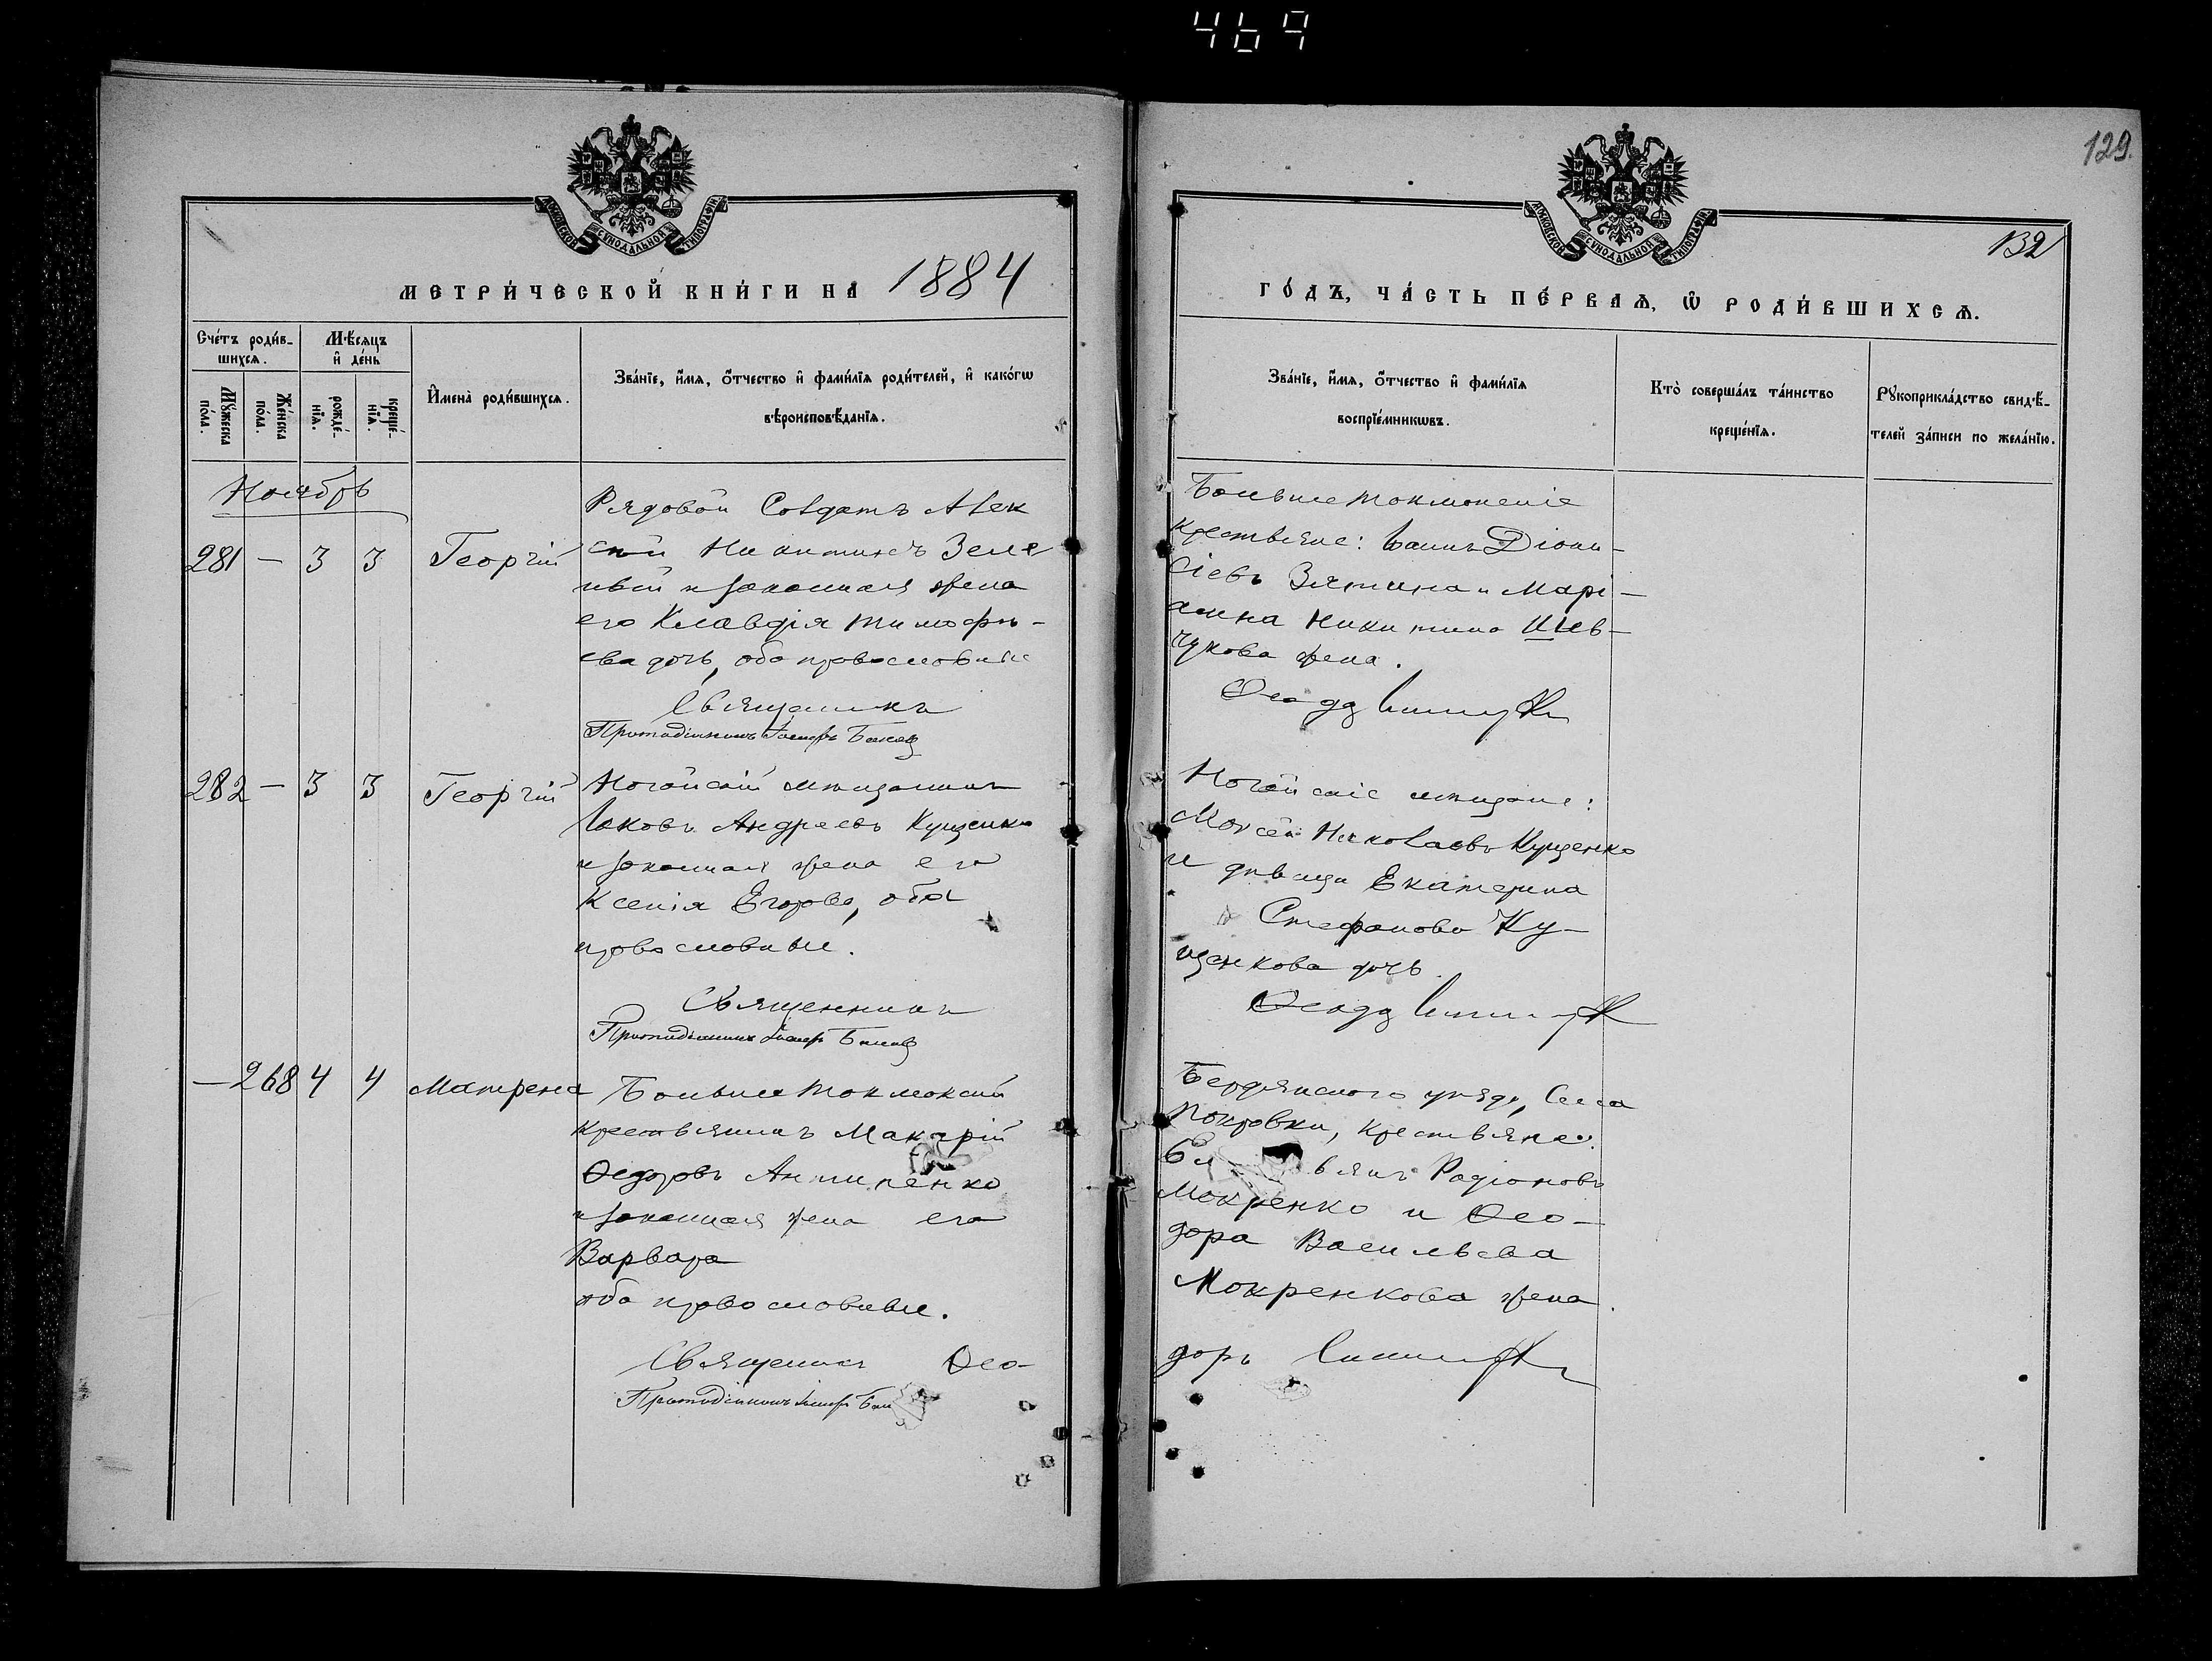 469
129.
МОСКОВСКОЙ СѴНОДАЛЬНОЙ ТИПОГРАФІИ
МЕТРИ́ЧЕСКОЙ КНИ́ГИ НА̀ 1884
Сче́тъ роди́в-
шихсѧ.
Мꙋ́жеска по́ла.
Же́нска по́ла.
Мѣ́сѧцъ
и҆ де́нь
рожде́-
нїѧ.
креще́-
нїѧ.
И҆мена̀ роди́вшихсѧ.
Зва́нїе, и҆́мѧ, ѻ҆́тчество и҆ фами́лїѧ роди́телей, и҆ како́гѡ
вѣроисповѣ́данїѧ.
Ноябрь
281 — 3 3 Георгій
Рядовой Солдатъ Алек
сѣй Зеле
ный и законная жена
его Клавдія Тимофѣ-
ева дочь, оба православные
Священникъ
282 — 3 3 Георгій
Ногайскій мѣщанинъ
Іаковъ Андреевъ Кущенко
и законная жена его
Ксенія Егорова, оба
православные.
Священникъ
— 268 4 4 Матрена
Большетокмокскій
крестьянинъ Макарій
Ѳедоровъ Антипенко
и законная жена его
Варвара
оба православные.
Священникъ Ѳео-
МОСКОВСКОЙ СѴНОДАЛЬНОЙ ТИПОГРАФІИ
132
ГО́ДЪ, ЧА́СТЬ ПЕ́РВАѦ, Ѡ҆ РОДИ́ВШИХСѦ.
Зва́нїе, и҆́мѧ, ѻ҆́тчество и҆ фами́лїѧ
воспрїе́мникѡвъ.
Кто̀ соверша́лъ та́инство
креще́нїѧ.
Рꙋкоприкла́дство свидѣ́-
телей за́писи по жела́нїю.
Большетокмокскіе
крестьяне: Іоаннъ Діони-
сіевъ и Марі-
анна Никитина Шев-
чукова жена.
Ногайскіе мѣщане:
Моисей Николаевъ Кущенко
и дѣвица Екатерина
Стефанова Ку-
щенкова дочь.
Бердянского уѣзда, Села
Покровки, крестьяне:
Радіоновъ
Мокренко и Ѳео-
дора Васильева
Мокренкова жена.
доръ